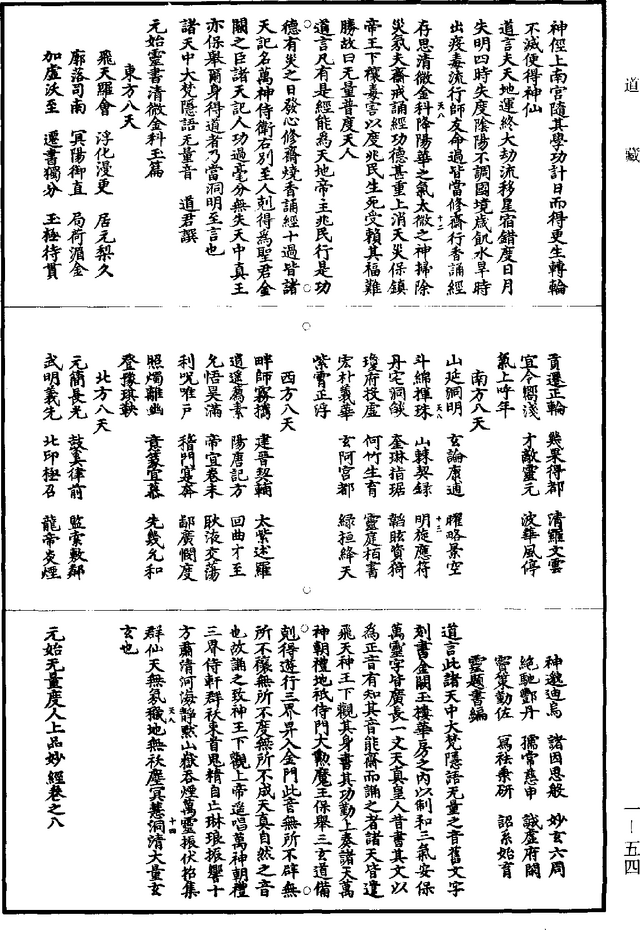 道藏
神徑上南宮隨其學功計日而得更生轉輪
不滅便得神仙
道言夫天地運終大劫流移星宿錯度日月
失明四時失度陰陽不調國境歲飢水旱時
出疫毒流行師友命過皆當修齋行香誦經
存思清微金科降陽華之氣太微之神掃除
災氛夫齋戒誦經功德甚重上消天災保鎮
帝王下禳毒害以度兆民生死受賴其福難
勝故曰无量普度天人
道言凡有是經能為天地帝主兆民行是功
德有災之日發心修齋燒香誦經十過皆諸
天記名萬神侍衛右別至人剋得為聖君金
闕之臣諸天記人功過毫分無失天中真王
亦保舉爾身得道者乃當洞明至言也
諸天中大梵隱語无量音 道君譔
元始靈書清微金科玉篇
東方八天
飛天羅會 浮化漫更 居元梨久
廓落司南 冥陽御直 局荷湄金
加盧沃至 遷書獨分 玉極待貫
天八
十二
貢還正輪 幾果得都 清羅文雲
宜令嚮淺 才敵靈元 波華風停
氣上呼年
南方八天
山延洞明 玄論康逋 曜略景空
斗綿揮珠 山棘契録 明旋應符
丹宅洞歛 奎琳指琚 韜眩資荷
瓊府投虛 何竹生育 靈庭栢書
宏朴義華 玄阿宮都 緑桓絳天
紫霄正浮
西方八天
畔師霧攜 建晉契輔 太紫述羅
道遥為素 陽唐記方 回曲才至
允悟吴滿 帝宜卷未 耿液交蕩
利唲唯戶 稽門寔奔 鄙廣憫度
照燭離幽 意篆宜慕 先幾允和
登豫琪軼
北方八天
元簡長光 鼓奚律前 監索敷鄰
武明義先 北印極召 龍帝炎煙
天八
十三
神邀迪烏 諸因恩般 妙玄六周
絶馳酆丹 孺常慈申 誠虛府闕
霄策勤佐 冩袪秉研 認系始育
靈題書編
道言此諸天中大梵隱語无量之音舊文字
刻書金闕玉樓華房之内以制和三氣安保
萬靈字皆廣長一丈天真皇人昔書其文以
為正音有知其音能齋而誦之者諸天皆遣
飛天神王下觀其身書其功勤上奏諸天萬
神朝禮地祇侍門大勲魔王保舉三玄道備
剋得遊行三界昇入金門此音無所不辟無
所不禳無所不度無所不成天真自然之音
也故誦之致神王下觀上帝遥唱萬神朝禮
三界侍軒群袄束首鬼精自亡琳琅振響十
方肅清河海静默山嶽吞煙萬靈振伏招集
群仙天無氛穢地無袄塵冥慧洞清大量玄
玄也
天八
十四
元始无量度人上品妙經卷之八
一—五四